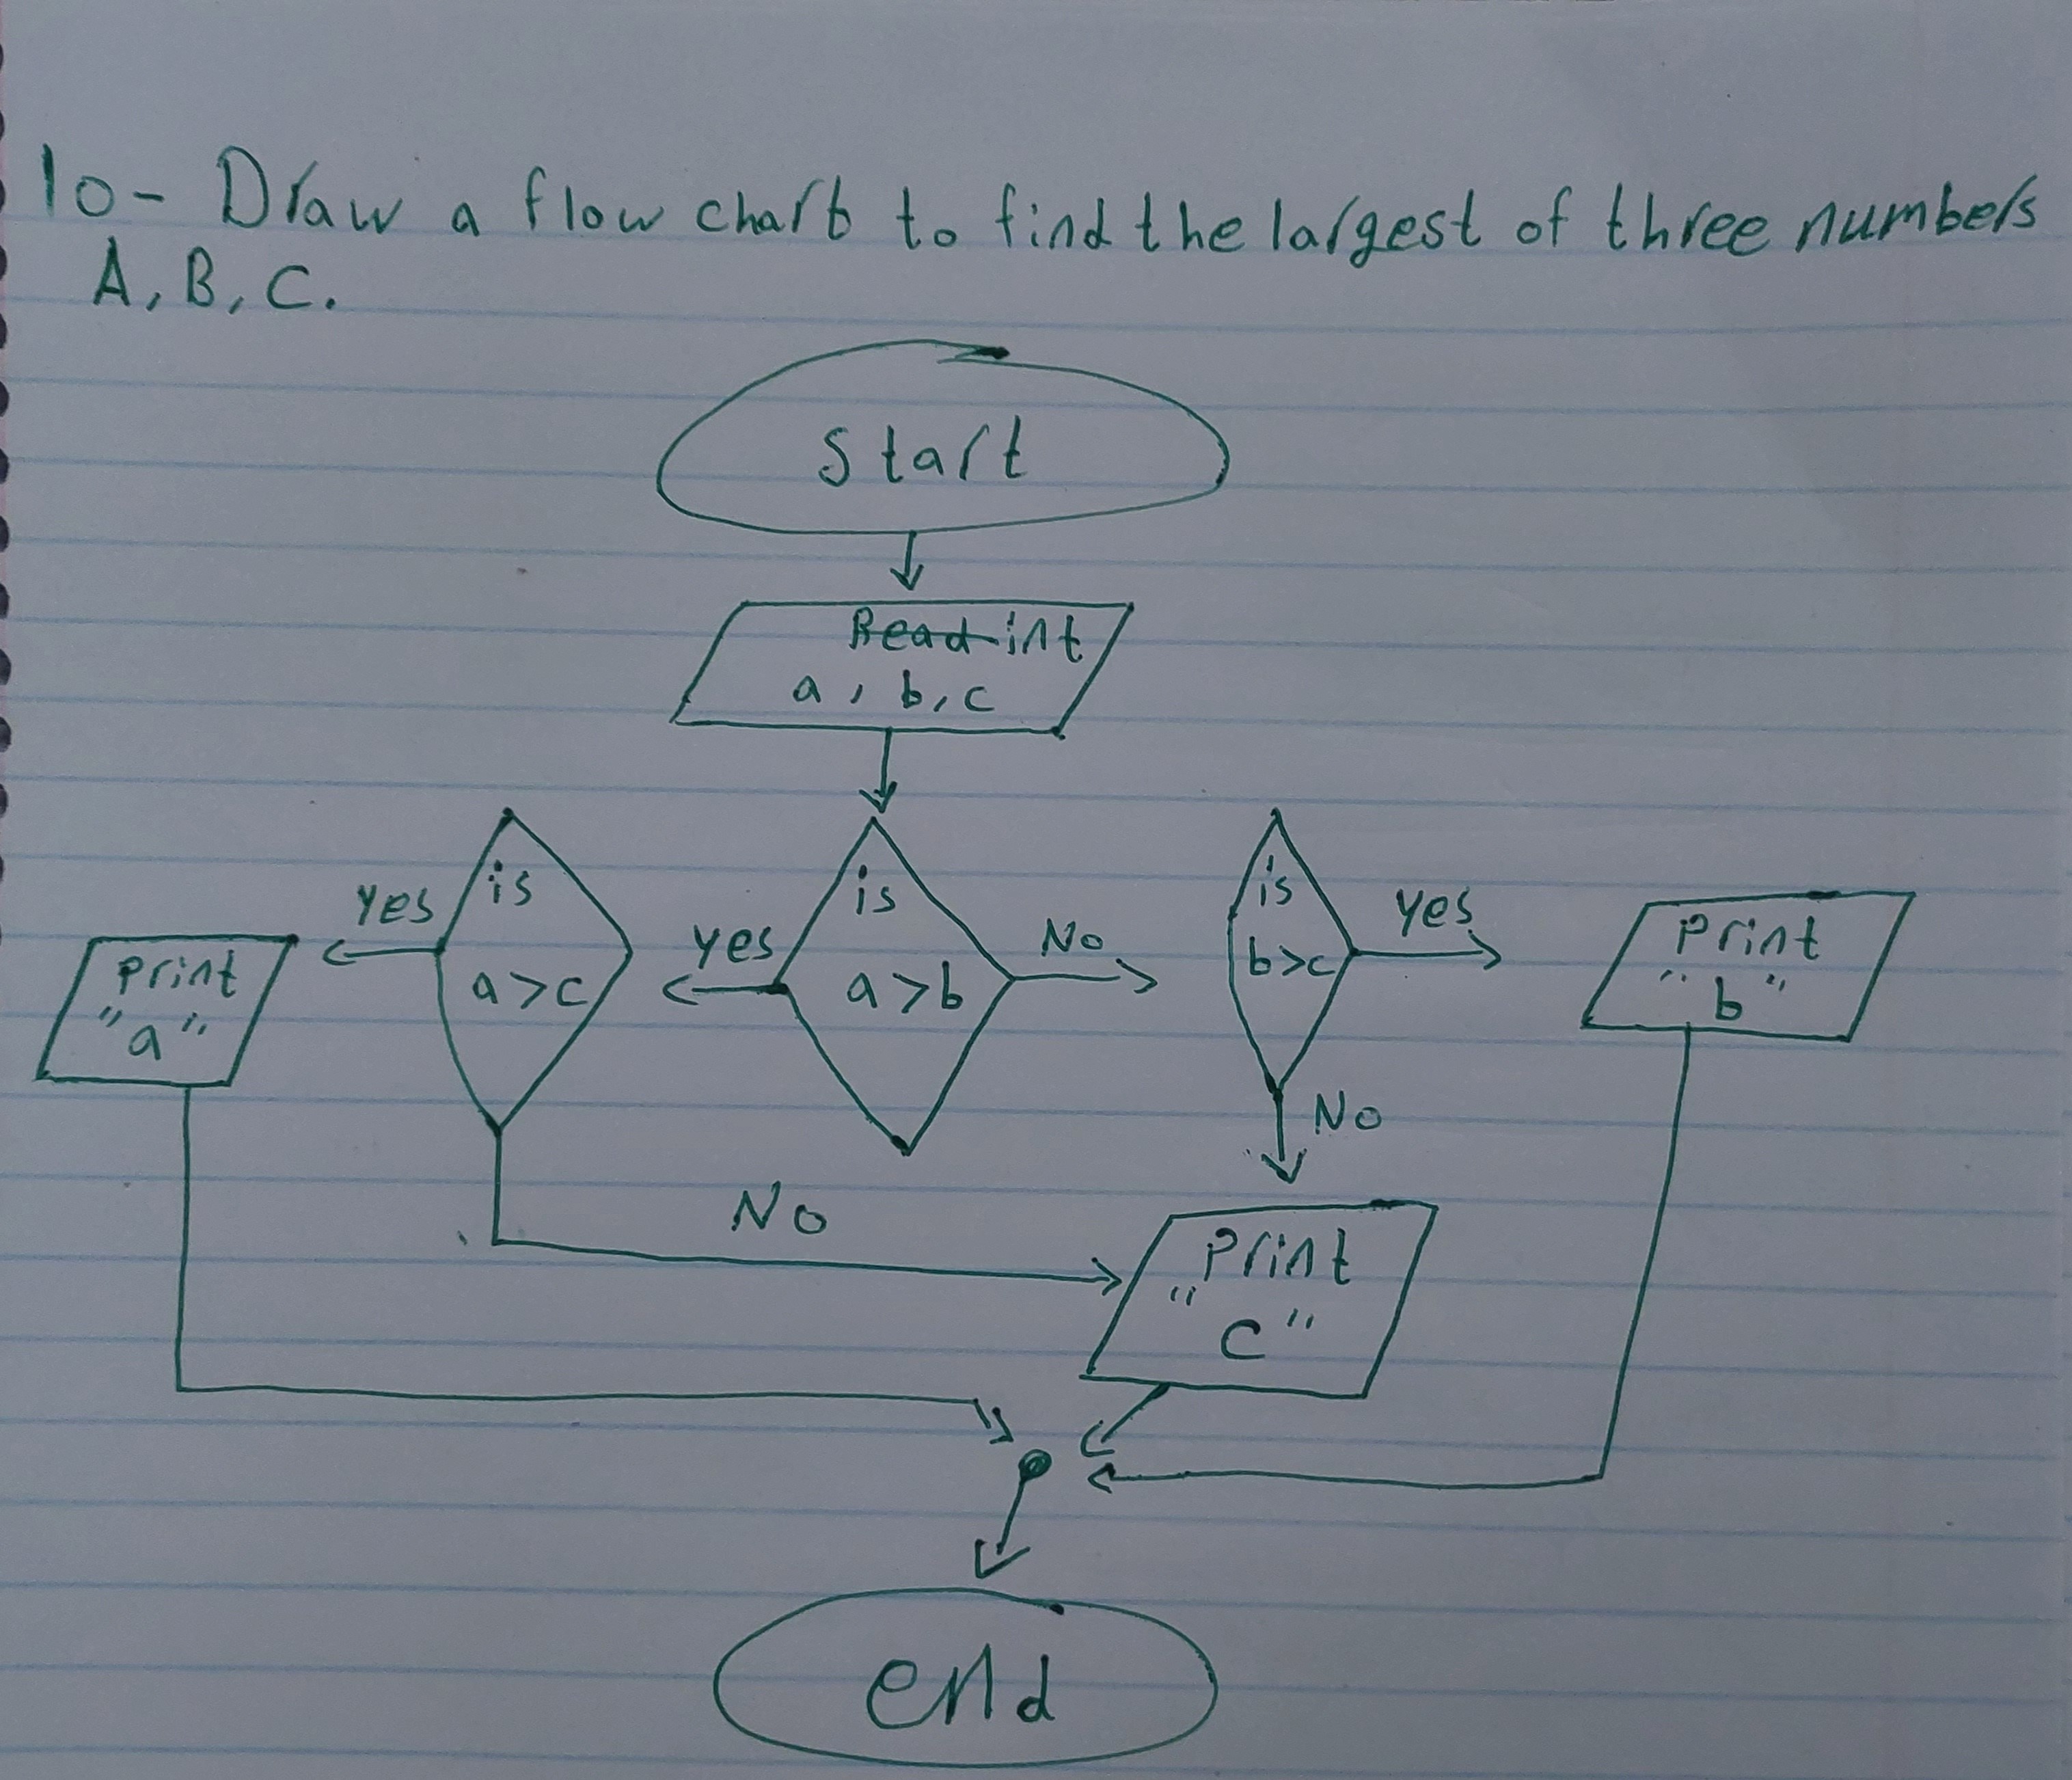 10- Draw a flow chart to find the largest of three numbers
A, B, C.
Start
Read int
a, b, c
is
a>c
yes
is
a>b
yes
No
is
b>c
yes
No
print
"a"
print
"b"
No
print
"C"
end